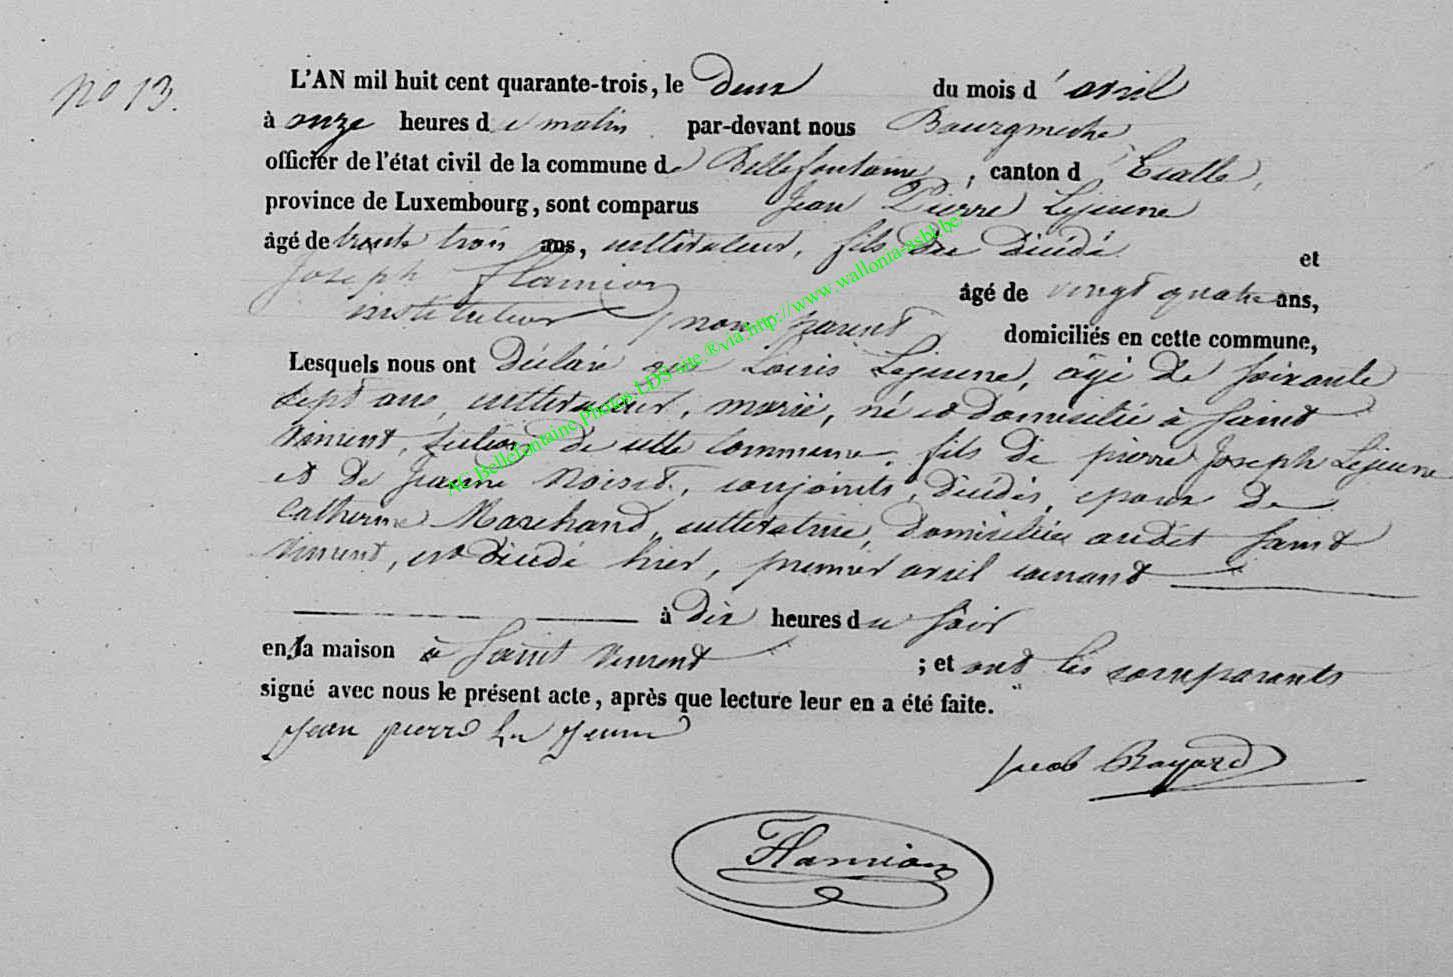 No 13.
L'AN mil huit cent quarante-trois, le deux du mois d'avril
à onze heures du matin par-devant nous Bourgmestre
officier de l'état civil de la commune de Bellefontaine, canton d'Etalle,
province de Luxembourg, sont comparus Jean Pierre Lejeune
âgé de trente trois ans, cultivateur, fils du décédé et
Joseph Flamion âgé de vingt quatre ans,
instituteur, non parent domiciliés en cette commune,
Lesquels nous ont déclaré que Louis Lejeune, âgé de soixante
sept ans, cultivateur, marié, né et domicilié à Saint
Vincent, section de cette commune, fils de pierre Joseph Lejeune
et de Jeanne Noiset, conjoints, décédés, epoux de
Catherine Marchand, cultivatrice, domiciliée audit Saint
Vincent, est décédé hier, premier avril courant
à dix heures du soir
en sa maison à Saint Vincent ; et ont les comparants
signé avec nous le présent acte, après que lecture leur en a été faite.
jean pierre Le Jeune
Jacob Bayard
Flamion
AC.Bellefontaine.Photos.LDS-site.®via.http://www.wallonia-asbl.be/